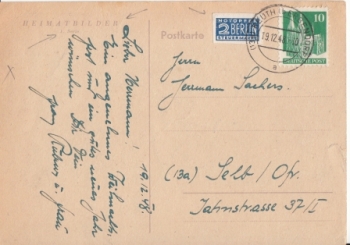 HEIMATBILDER
Postkarte
NOTOPFER
2 BERLIN
STEUERMARKE
10
DEUTSCHE POST
19.12.4
19.12.48.
Lieber Hermann!
Ein angenehmes Weihnachts-
fest und ein gutes neues Jahr
wünschen Dir Dein
Herrn
Hermann
(13a) Selb / Ofr.
Jahnstrasse 37/I